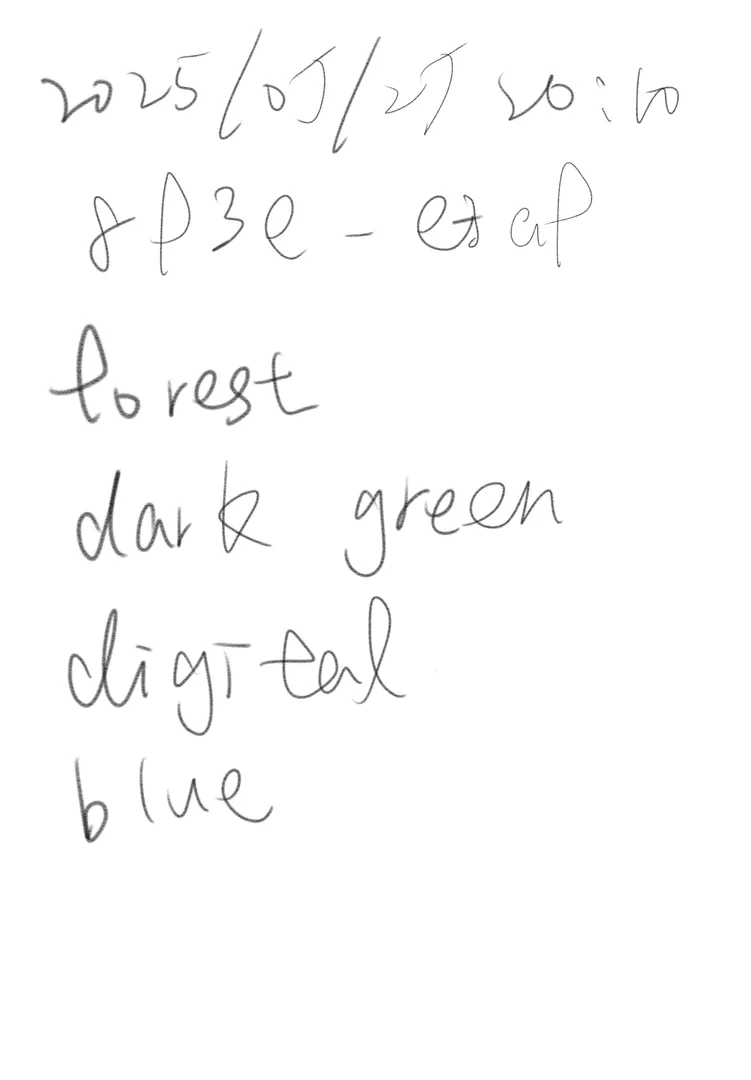 2025/05/25 20:10
8p3e-
forest
dark green
digital
blue